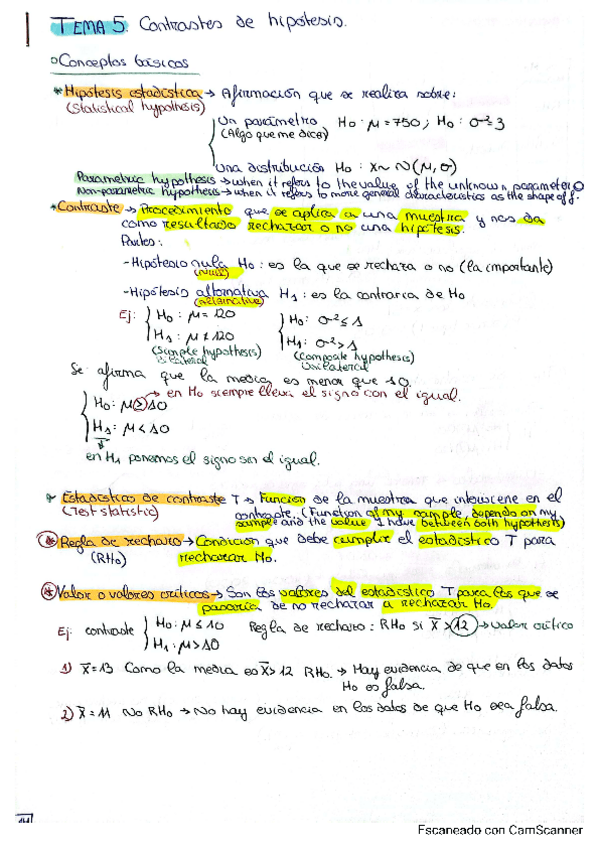 TEMA 5. Contrastes de hipótesis.
Conceptos básicos
* Hipótesis estadística → Afirmación que se realiza sobre:
(Statistical hypothesis)
Un parámetro H0: μ = 750; H0: σ² = 3
(Algo que me dicen)
Una distribución H0: X ~ N(μ, σ)
Parametric hypothesis → when it refers to the value of the unknown parameter θ
Non-parametric hypothesis → when it refers to more general characteristics as the shape of f.
* Contraste → Procedimiento que se aplica a una muestra y nos da
como resultado rechazar o no una hipótesis.
Partes:
- Hipótesis nula H0: es la que se rechaza o no (la importante)
(Null)
- Hipótesis alternativa H1: es la contraria de H0
(alternative)
Ej: H0: μ = 120 H0: σ² ≤ 1
H1: μ ≠ 120 H1: σ² > 1
(Simple hypothesis) (Composite hypothesis)
Bilateral Unilateral
Se afirma que la media es menor que 10.
H0: μ ≥ 10 → en H0 siempre lleva el signo con el igual.
H1: μ < 10
en H1 ponemos el signo sin el igual.
* Estadísticos de contraste T → Función de la muestra que interviene en el
(Test statistic) contraste. (Function of my sample, depends on my
sample and the value I have between both hypothesis)
* Regla de rechazo → Condición que debe cumplir el estadístico T para
(RH0) rechazar H0.
* Valor o valores críticos → Son los valores del estadístico T para los que se
pasaría de no rechazar a rechazar H0.
Ej: contraste H0: μ ≤ 10 Regla de rechazo: RH0 si X̄ > 12 → valor crítico
H1: μ > 10
1) X̄ = 13 Como la media es X̄ > 12 RH0. → Hay evidencia de que en los datos
H0 es falsa.
2) X̄ = 11 No RH0 → No hay evidencia en los datos de que H0 sea falsa.
Escaneado con CamScanner